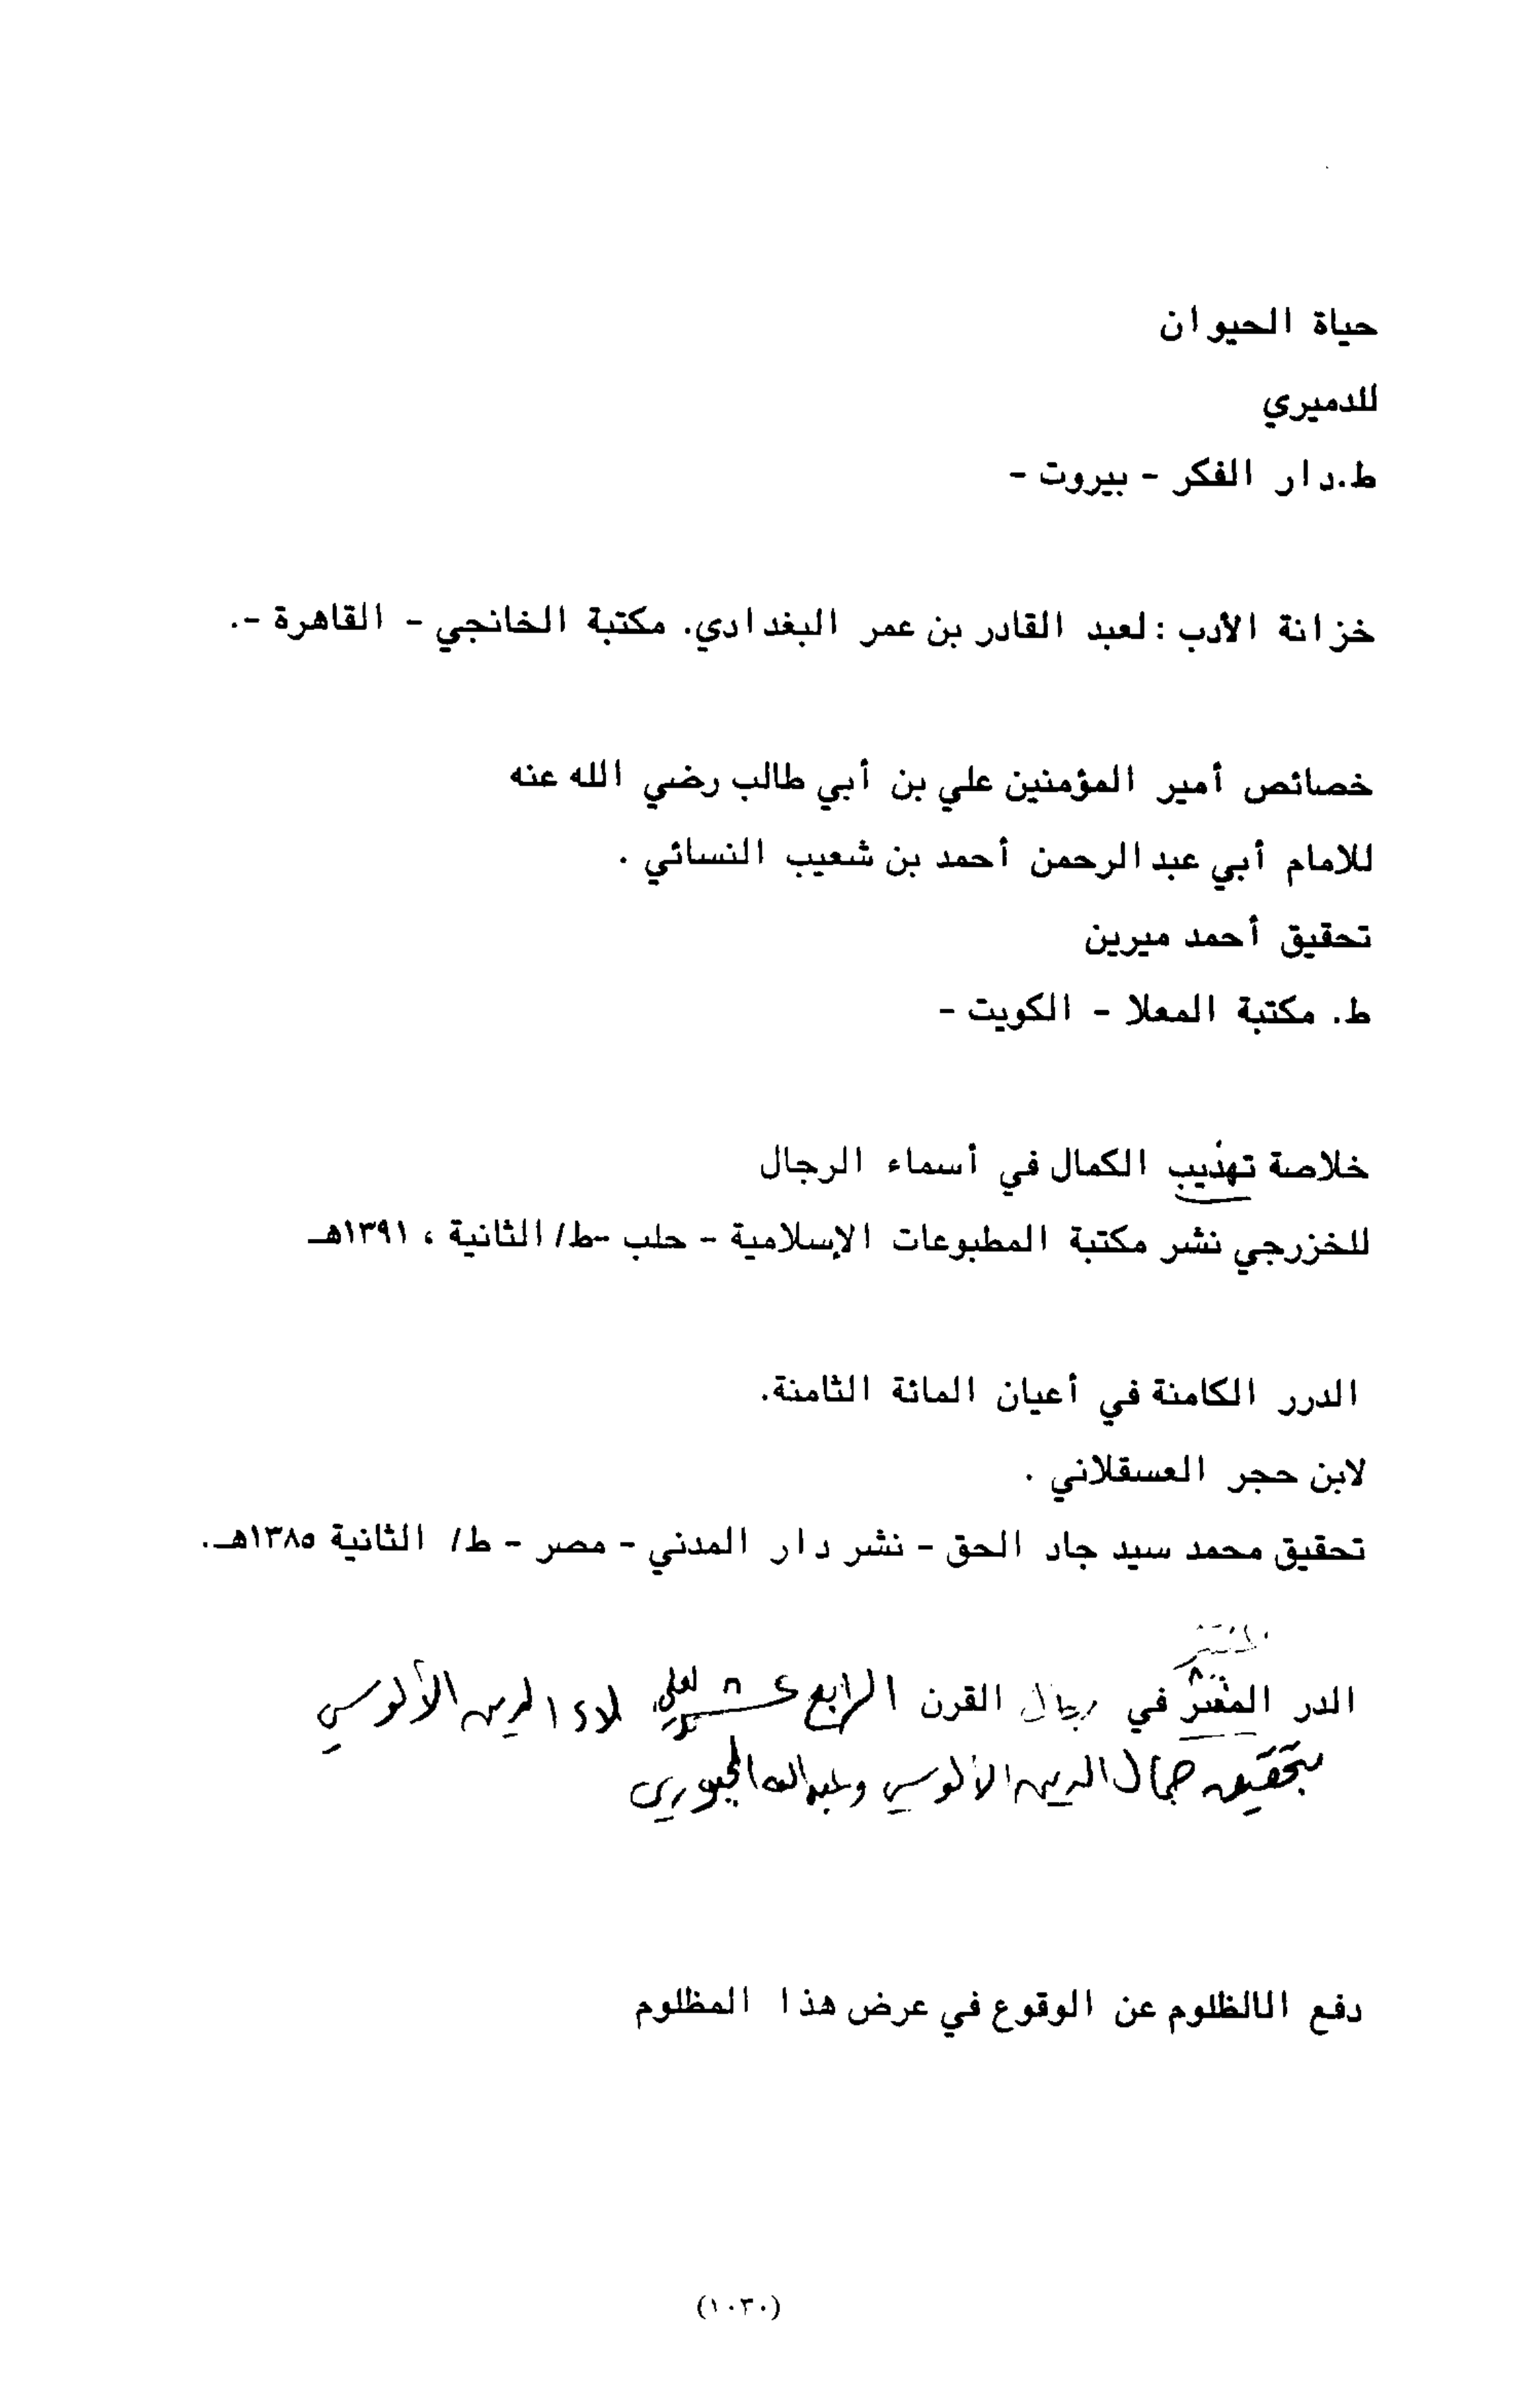 حياة الحيوان
للدميري
ط.دار الفكر - بيروت -
خزانة الأدب : لعبد القادر بن عمر البغدادي. مكتبة الخانجي - القاهرة -.
خصائص أمير المؤمنين علي بن أبي طالب رضي الله عنه
للامام أبي عبد الرحمن أحمد بن شعيب النسائي .
تحقيق أحمد ميرين
ط. مكتبة المعلا - الكويت -
خلاصة تهذيب الكمال في أسماء الرجال
للخزرجي نشر مكتبة المطبوعات الإسلامية - حلب -ط/ الثانية ، ١٣٩١هـ
الدرر الكامنة في أعيان المائة الثامنة.
لابن حجر العسقلاني .
تحقيق محمد سيد جاد الحق - نشر دار المدني - مصر - ط/ الثانية ١٣٨٥هـ.
المنتثر
الدر في رجال القرن الرابع لعلي علاء الدين الألوسي
بتحقيق جمال الدين الألوسي وعبدالله الجبوري
دفع الالظلوم عن الوقوع في عرض هذا المظلوم
(١٠٣٠)